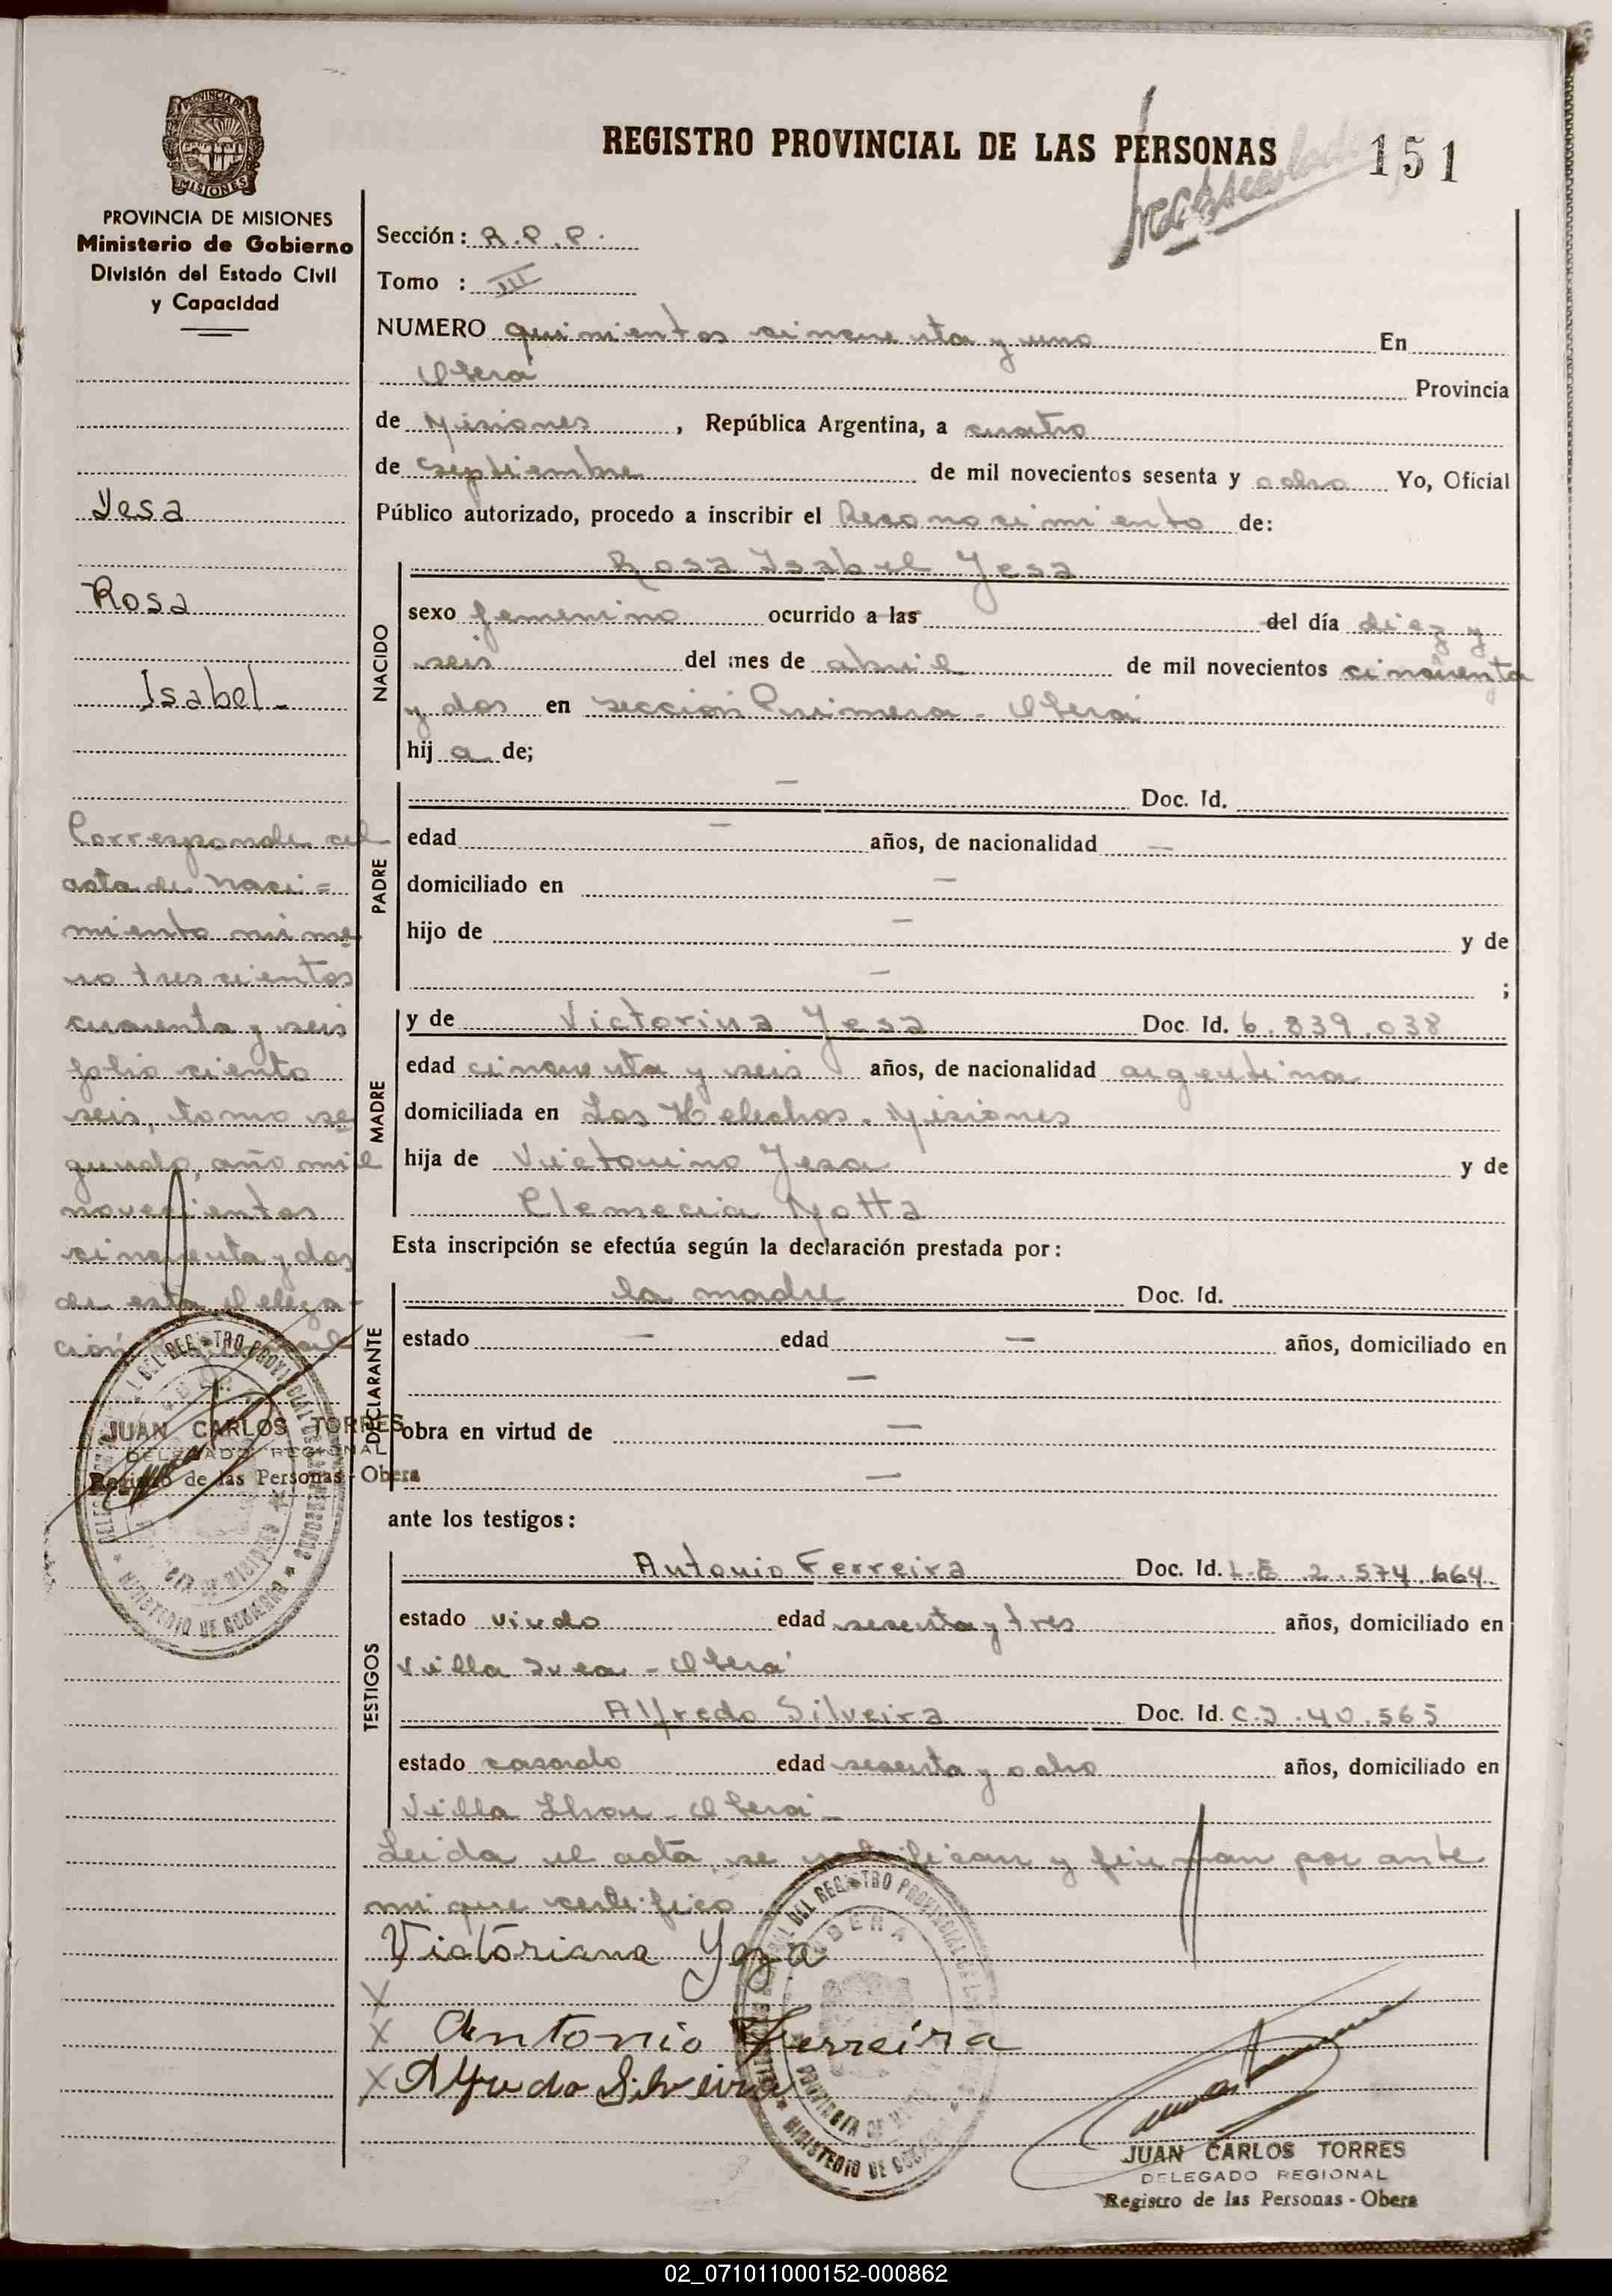 REGISTRO PROVINCIAL DE LAS PERSONAS
151
PROVINCIA DE MISIONES
Ministerio de Gobierno
División del Estado Civil
y Capacidad
Yesa
Rosa
Isabel.-
Corresponde al
acta de naci=
miento núme
ro trescientos
cuarenta y seis
folio ciento
seis, tomo se
gundo, año mil
novecientos
cincuenta y dos
de esta Delega-
ción
JUAN CARLOS TORRES
DELEGADO REGIONAL
Registro de las Personas - Obera
Sección: R.P.P.
Tomo : III
NUMERO quinientos cincuenta y uno En
Oberá Provincia
de Misiones, República Argentina, a cuatro
de Septiembre de mil novecientos sesenta y ocho Yo, Oficial
Público autorizado, procedo a inscribir el Reconocimiento de:
NACIDO
Rosa Isabel Yesa
sexo femenino ocurrido a las del día diez y
seis del mes de abril de mil novecientos cincuenta
y dos en sección Primera - Oberá
hij a de;
PADRE
— Doc. Id.
edad — años, de nacionalidad —
domiciliado en —
hijo de — y de
— ;
MADRE
y de Victorina Yesa Doc. Id. 6.839.038
edad cincuenta y seis años, de nacionalidad argentina
domiciliada en Los Helechos. Misiones
hija de Victorino Yesa y de
Clemecia Motta
Esta inscripción se efectúa según la declaración prestada por:
DECLARANTE
la madre Doc. Id.
estado — edad — años, domiciliado en
—
obra en virtud de —
—
ante los testigos:
TESTIGOS
Antonio Ferreira Doc. Id. L.E 2.574.664.
estado viudo edad sesenta y tres años, domiciliado en
Villa - Oberá
Alfredo Silveira Doc. Id. C.I.40.565
estado casado edad sesenta y ocho años, domiciliado en
Villa - Oberá -
Leida el acta, se ratifican y firman por ante
mi que certifico
Victoriana Yeza
X
X Antonio Ferreira
X Alfredo Silveira
JUAN CARLOS TORRES
DELEGADO REGIONAL
Registro de las Personas - Obera
02_071011000152-000862